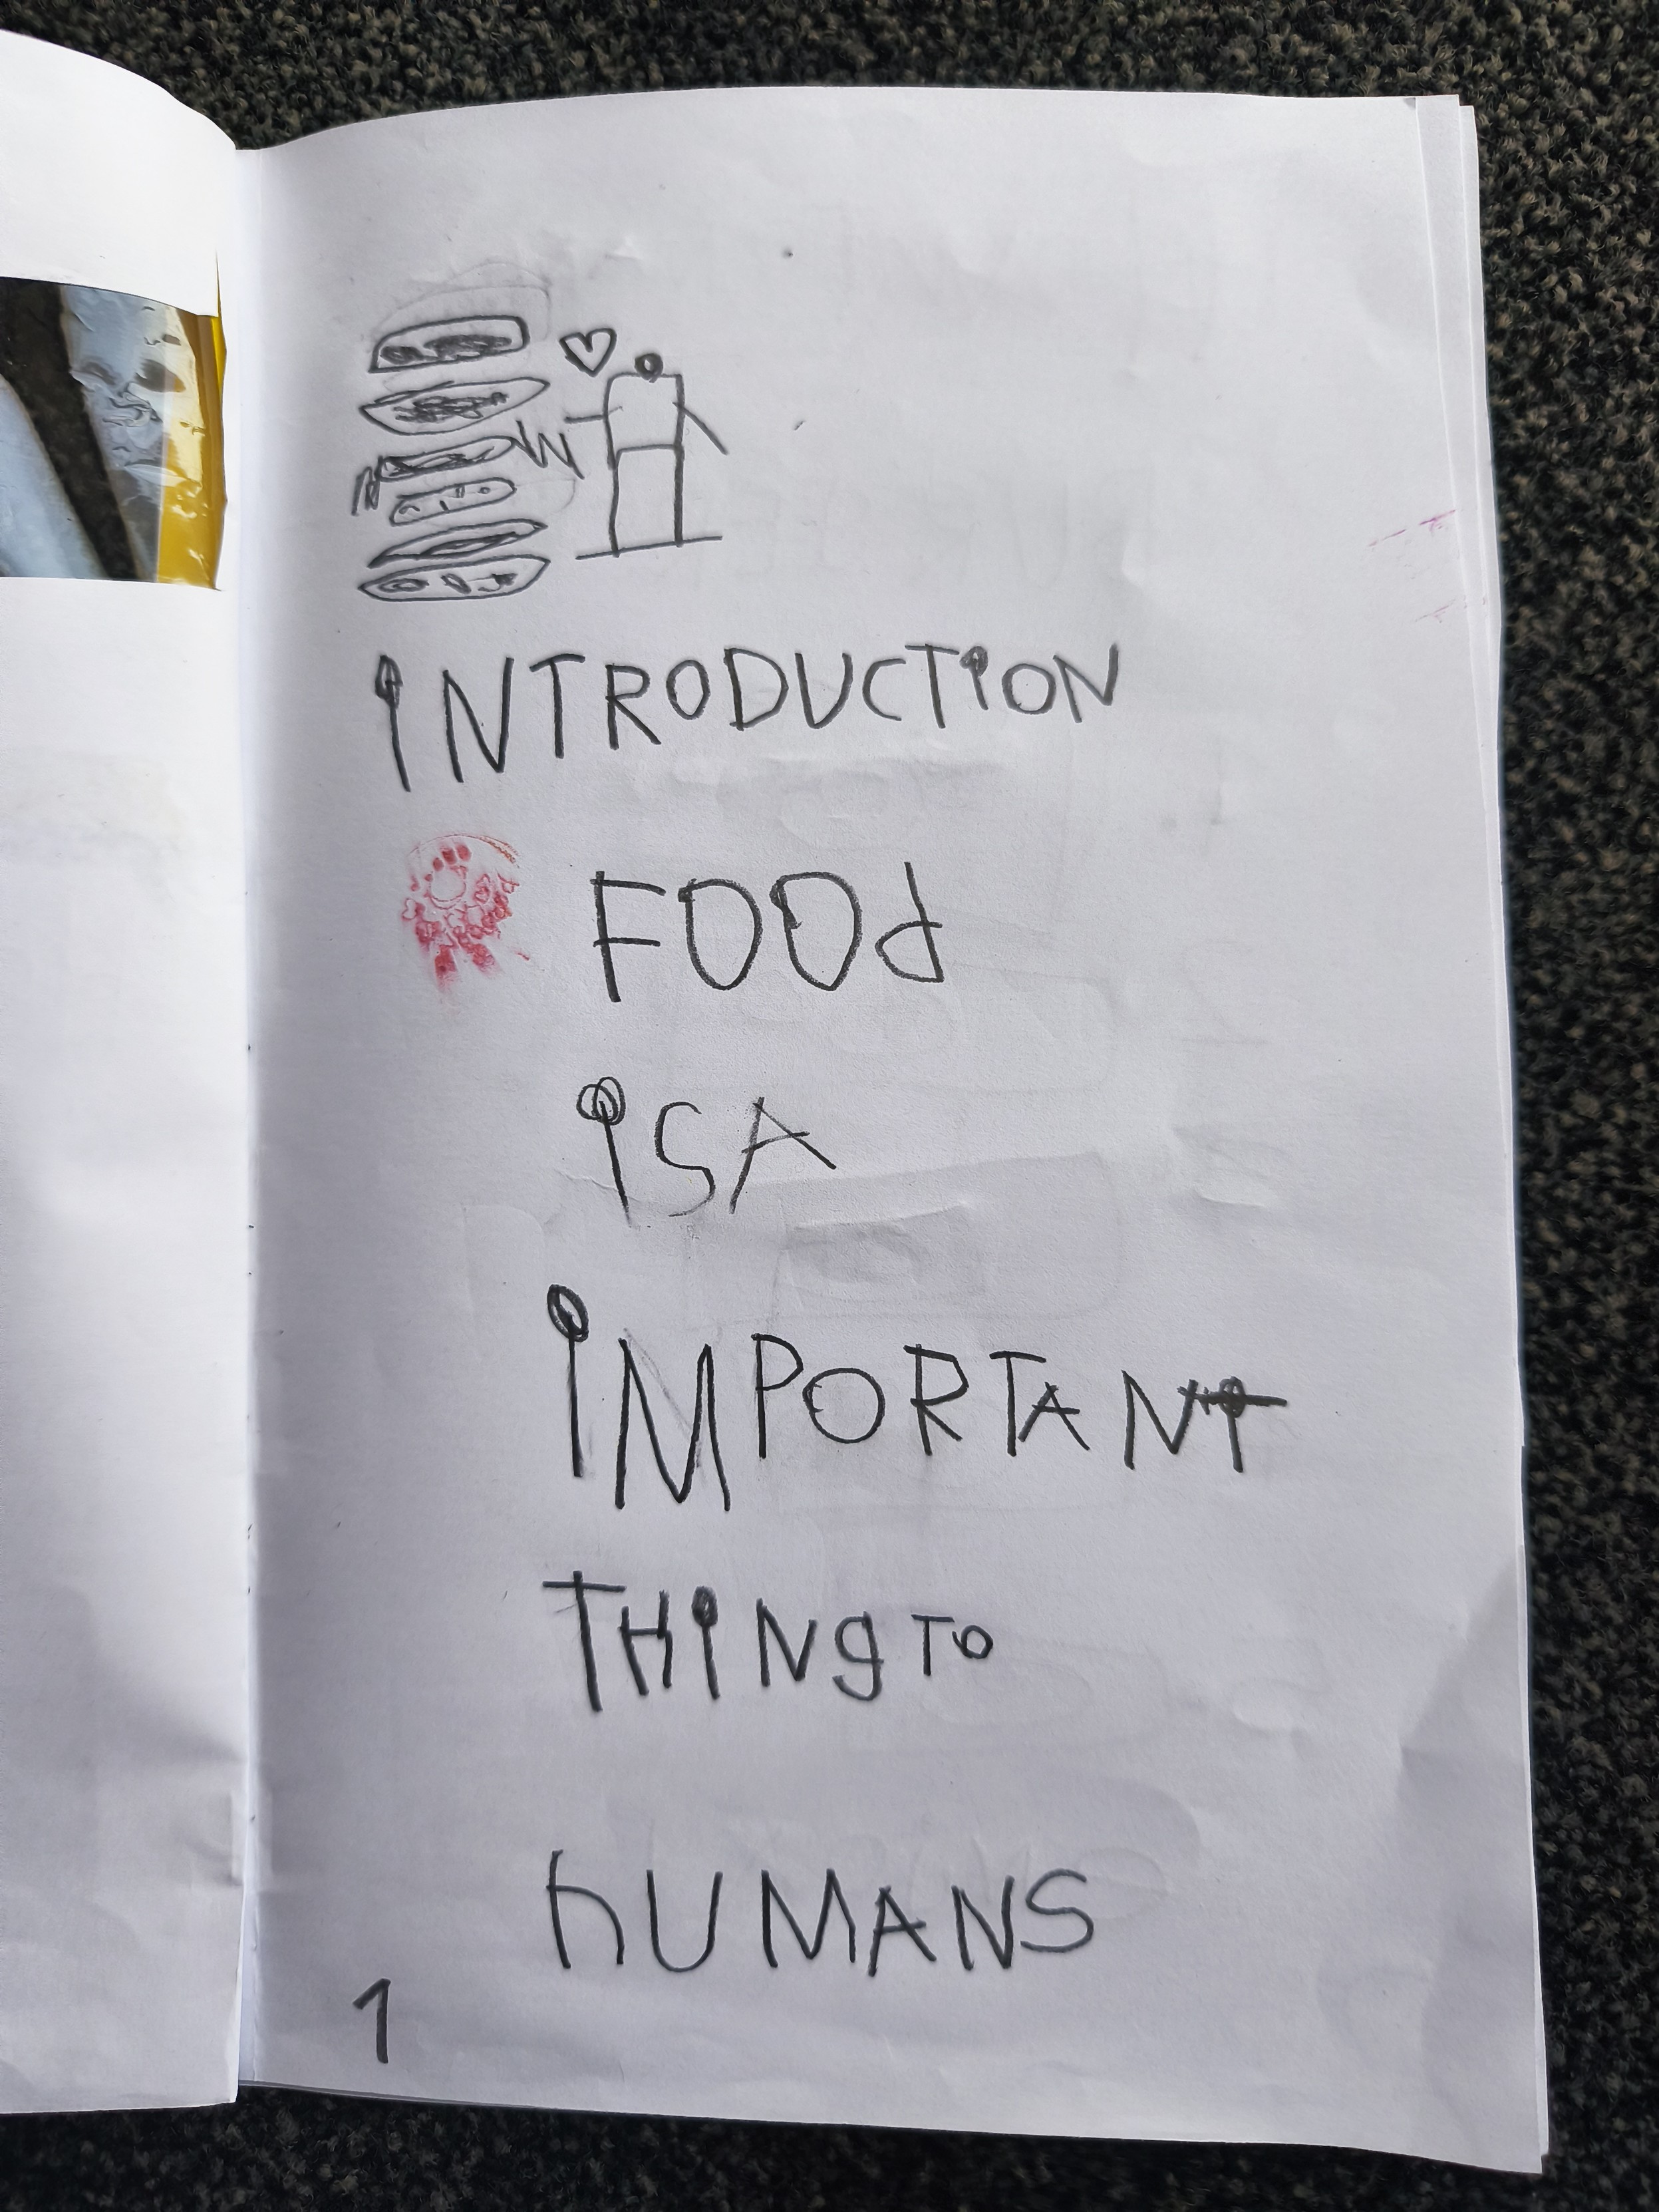 iNTRODUCTiON
FOOd
iSA
iMPORTANT
THiNg TO
hUMANS
1